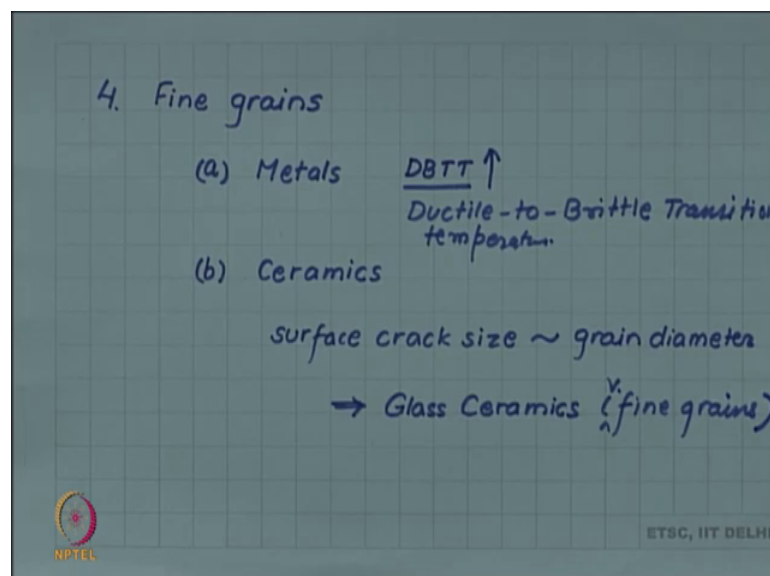 4. Fine grains
(a) Metals DBTT ↑
Ductile-to-Brittle Transition
temperatur.
(b) Ceramics
surface crack size ~ grain diameter
→ Glass Ceramics (v. fine grains)
ETSC, IIT DELHI
NPTEL